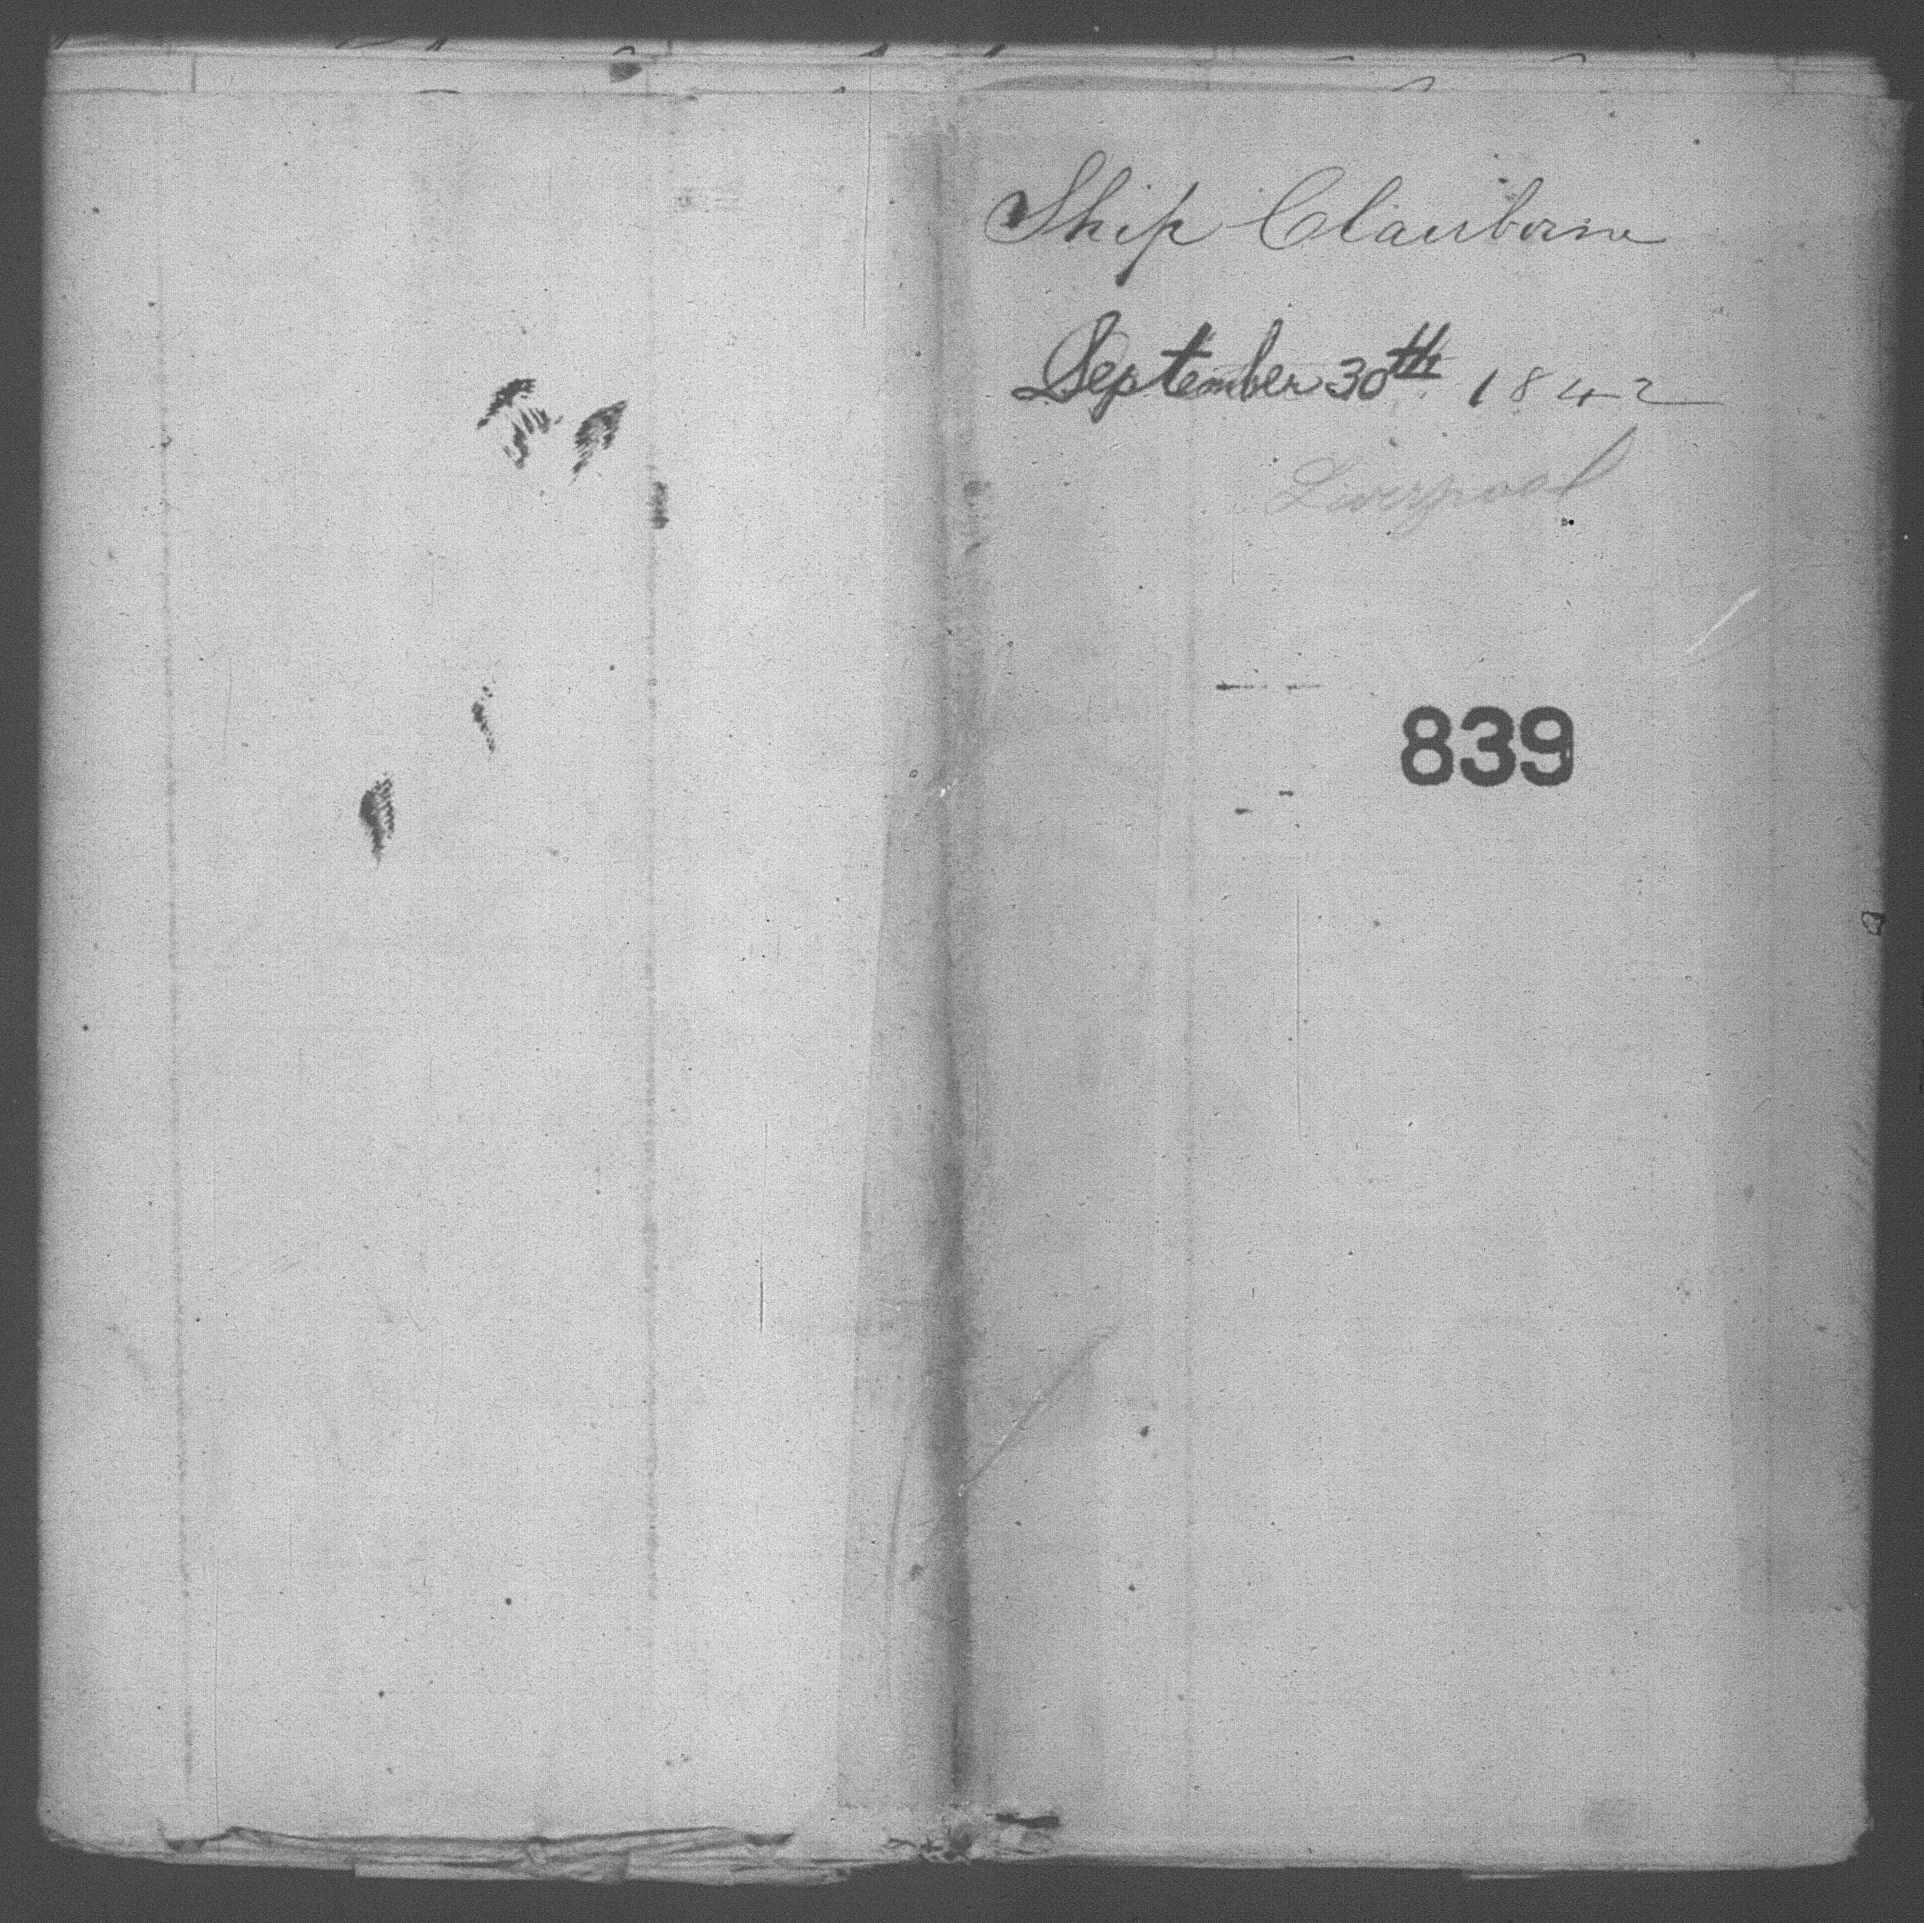 Ship Claiborne
September 30th 1842
Liverpool
839